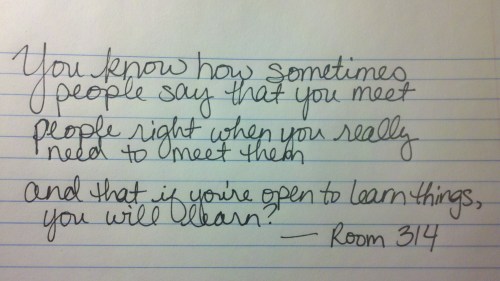 You know how sometimes
people say that you meet
people right when you really
need to meet them
and that if you're open to learn things,
you will learn?
— Room 314